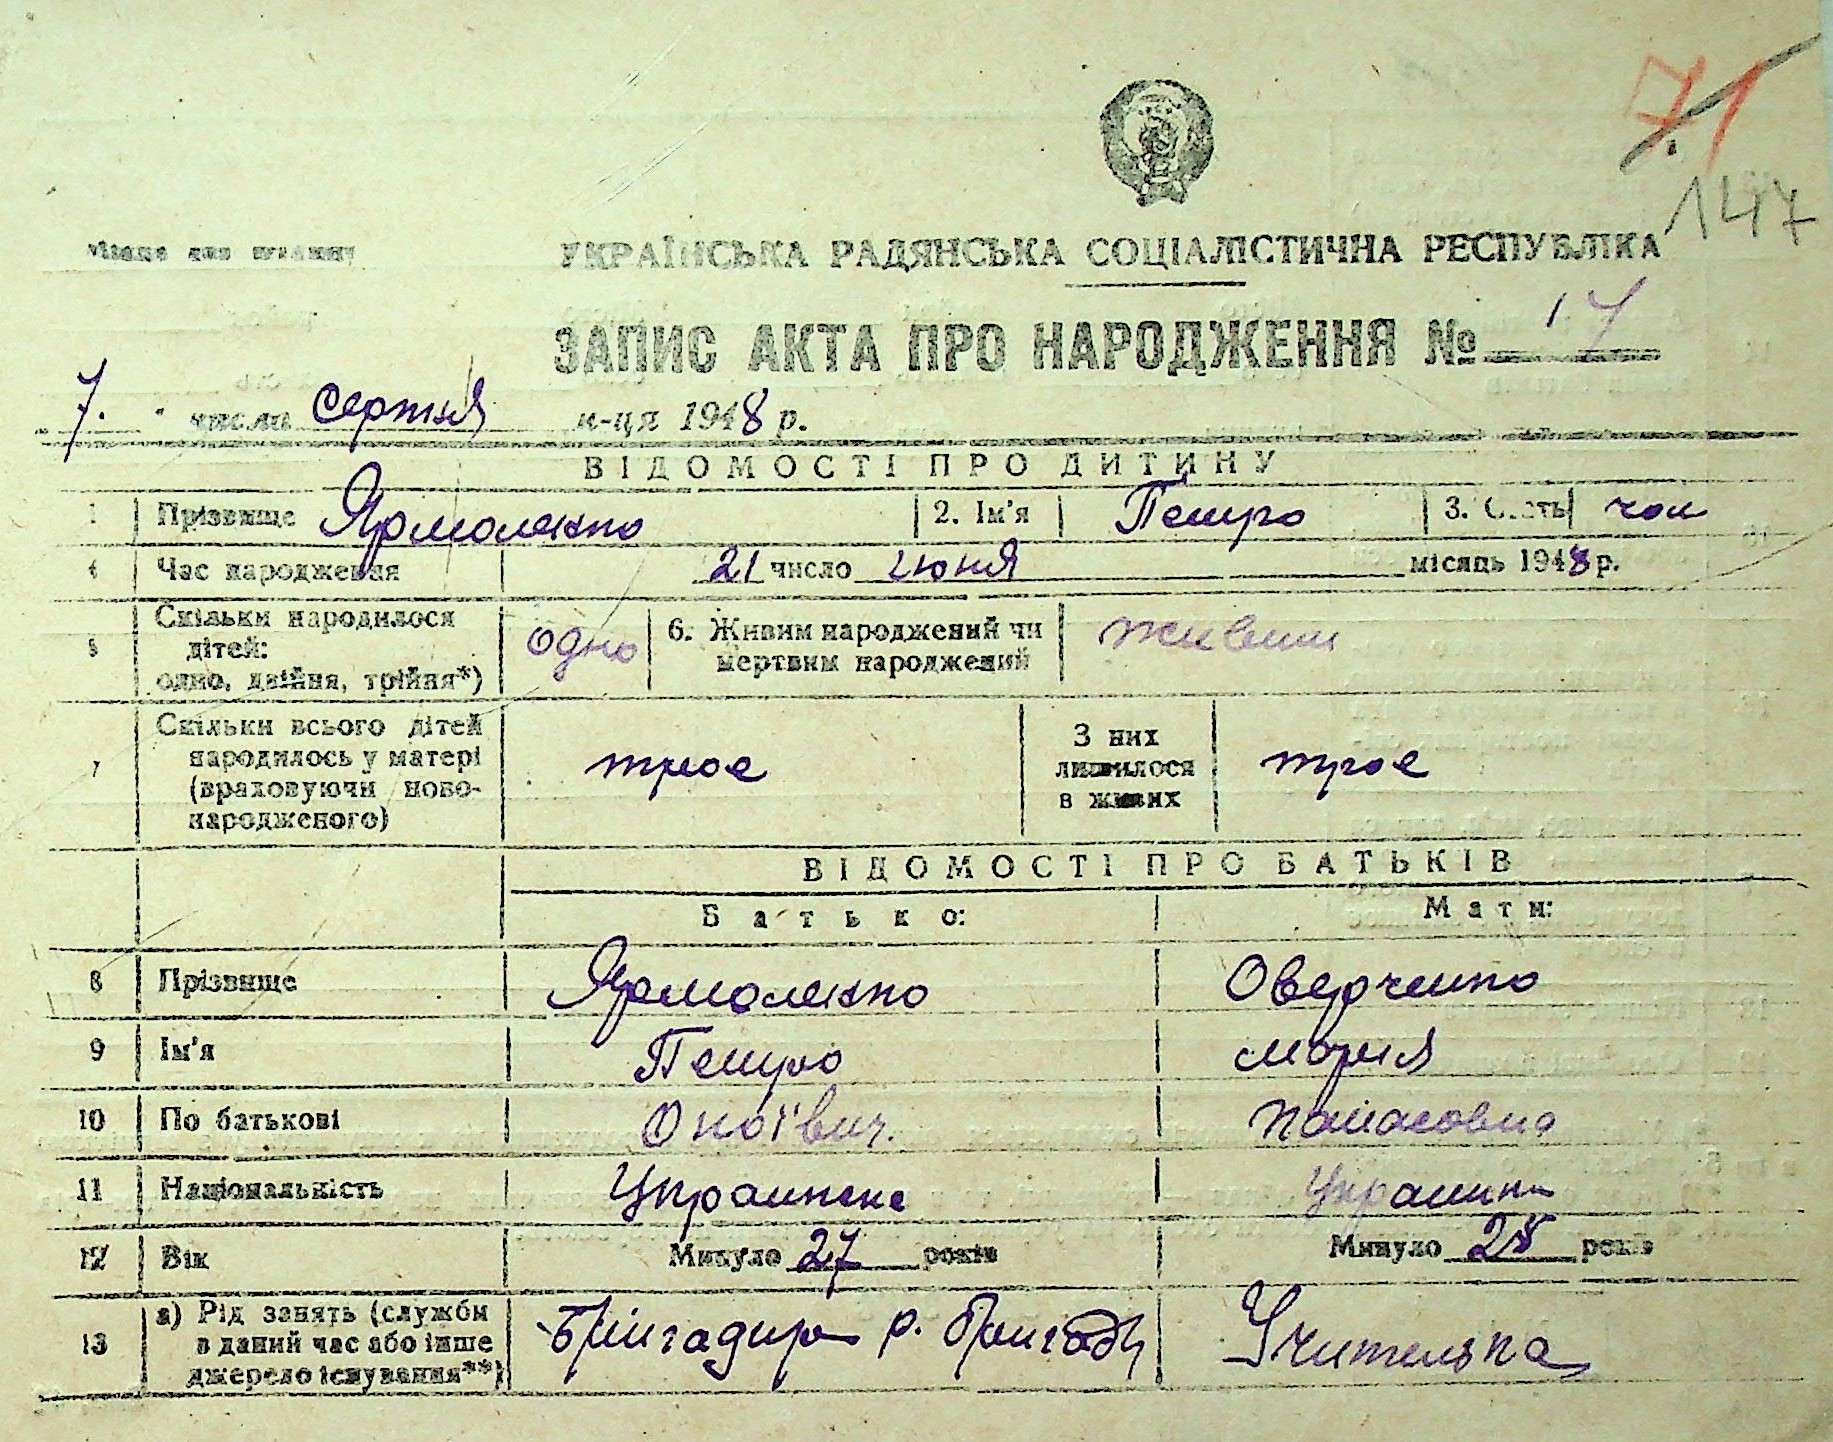 71
147
Місце для штампу
УКРАЇНСЬКА РАДЯНСЬКА СОЦІАЛІСТИЧНА РЕСПУБЛІКА
ЗАПИС АКТА ПРО НАРОДЖЕННЯ № 17
7. числа серпня м-ця 1948 р.
ВІДОМОСТІ ПРО ДИТИНУ
1 Прізвище Ярмоленко 2. Ім'я Петро 3. Стать чол
4 Час народження 21 число июня місяць 1948 р.
5 Скільки народилося дітей: одно, двійня, трійня*) одно 6. Живим народжений чи мертвим народжений живим
7 Скільки всього дітей народилось у матері (враховуючи новонародженого) троє З них лишилося в живих троє
ВІДОМОСТІ ПРО БАТЬКІВ
Батько: Мати:
8 Прізвище Ярмоленко Оверченко
9 Ім'я Петро Мария
10 По батькові Панасовна
11 Національність Украинець Украинка
12 Вік Минуло 27 років Минуло 28 років
13 а) Рід занять (служби в даний час або інше джерело існування**) Бригадир р. бригади Учителька